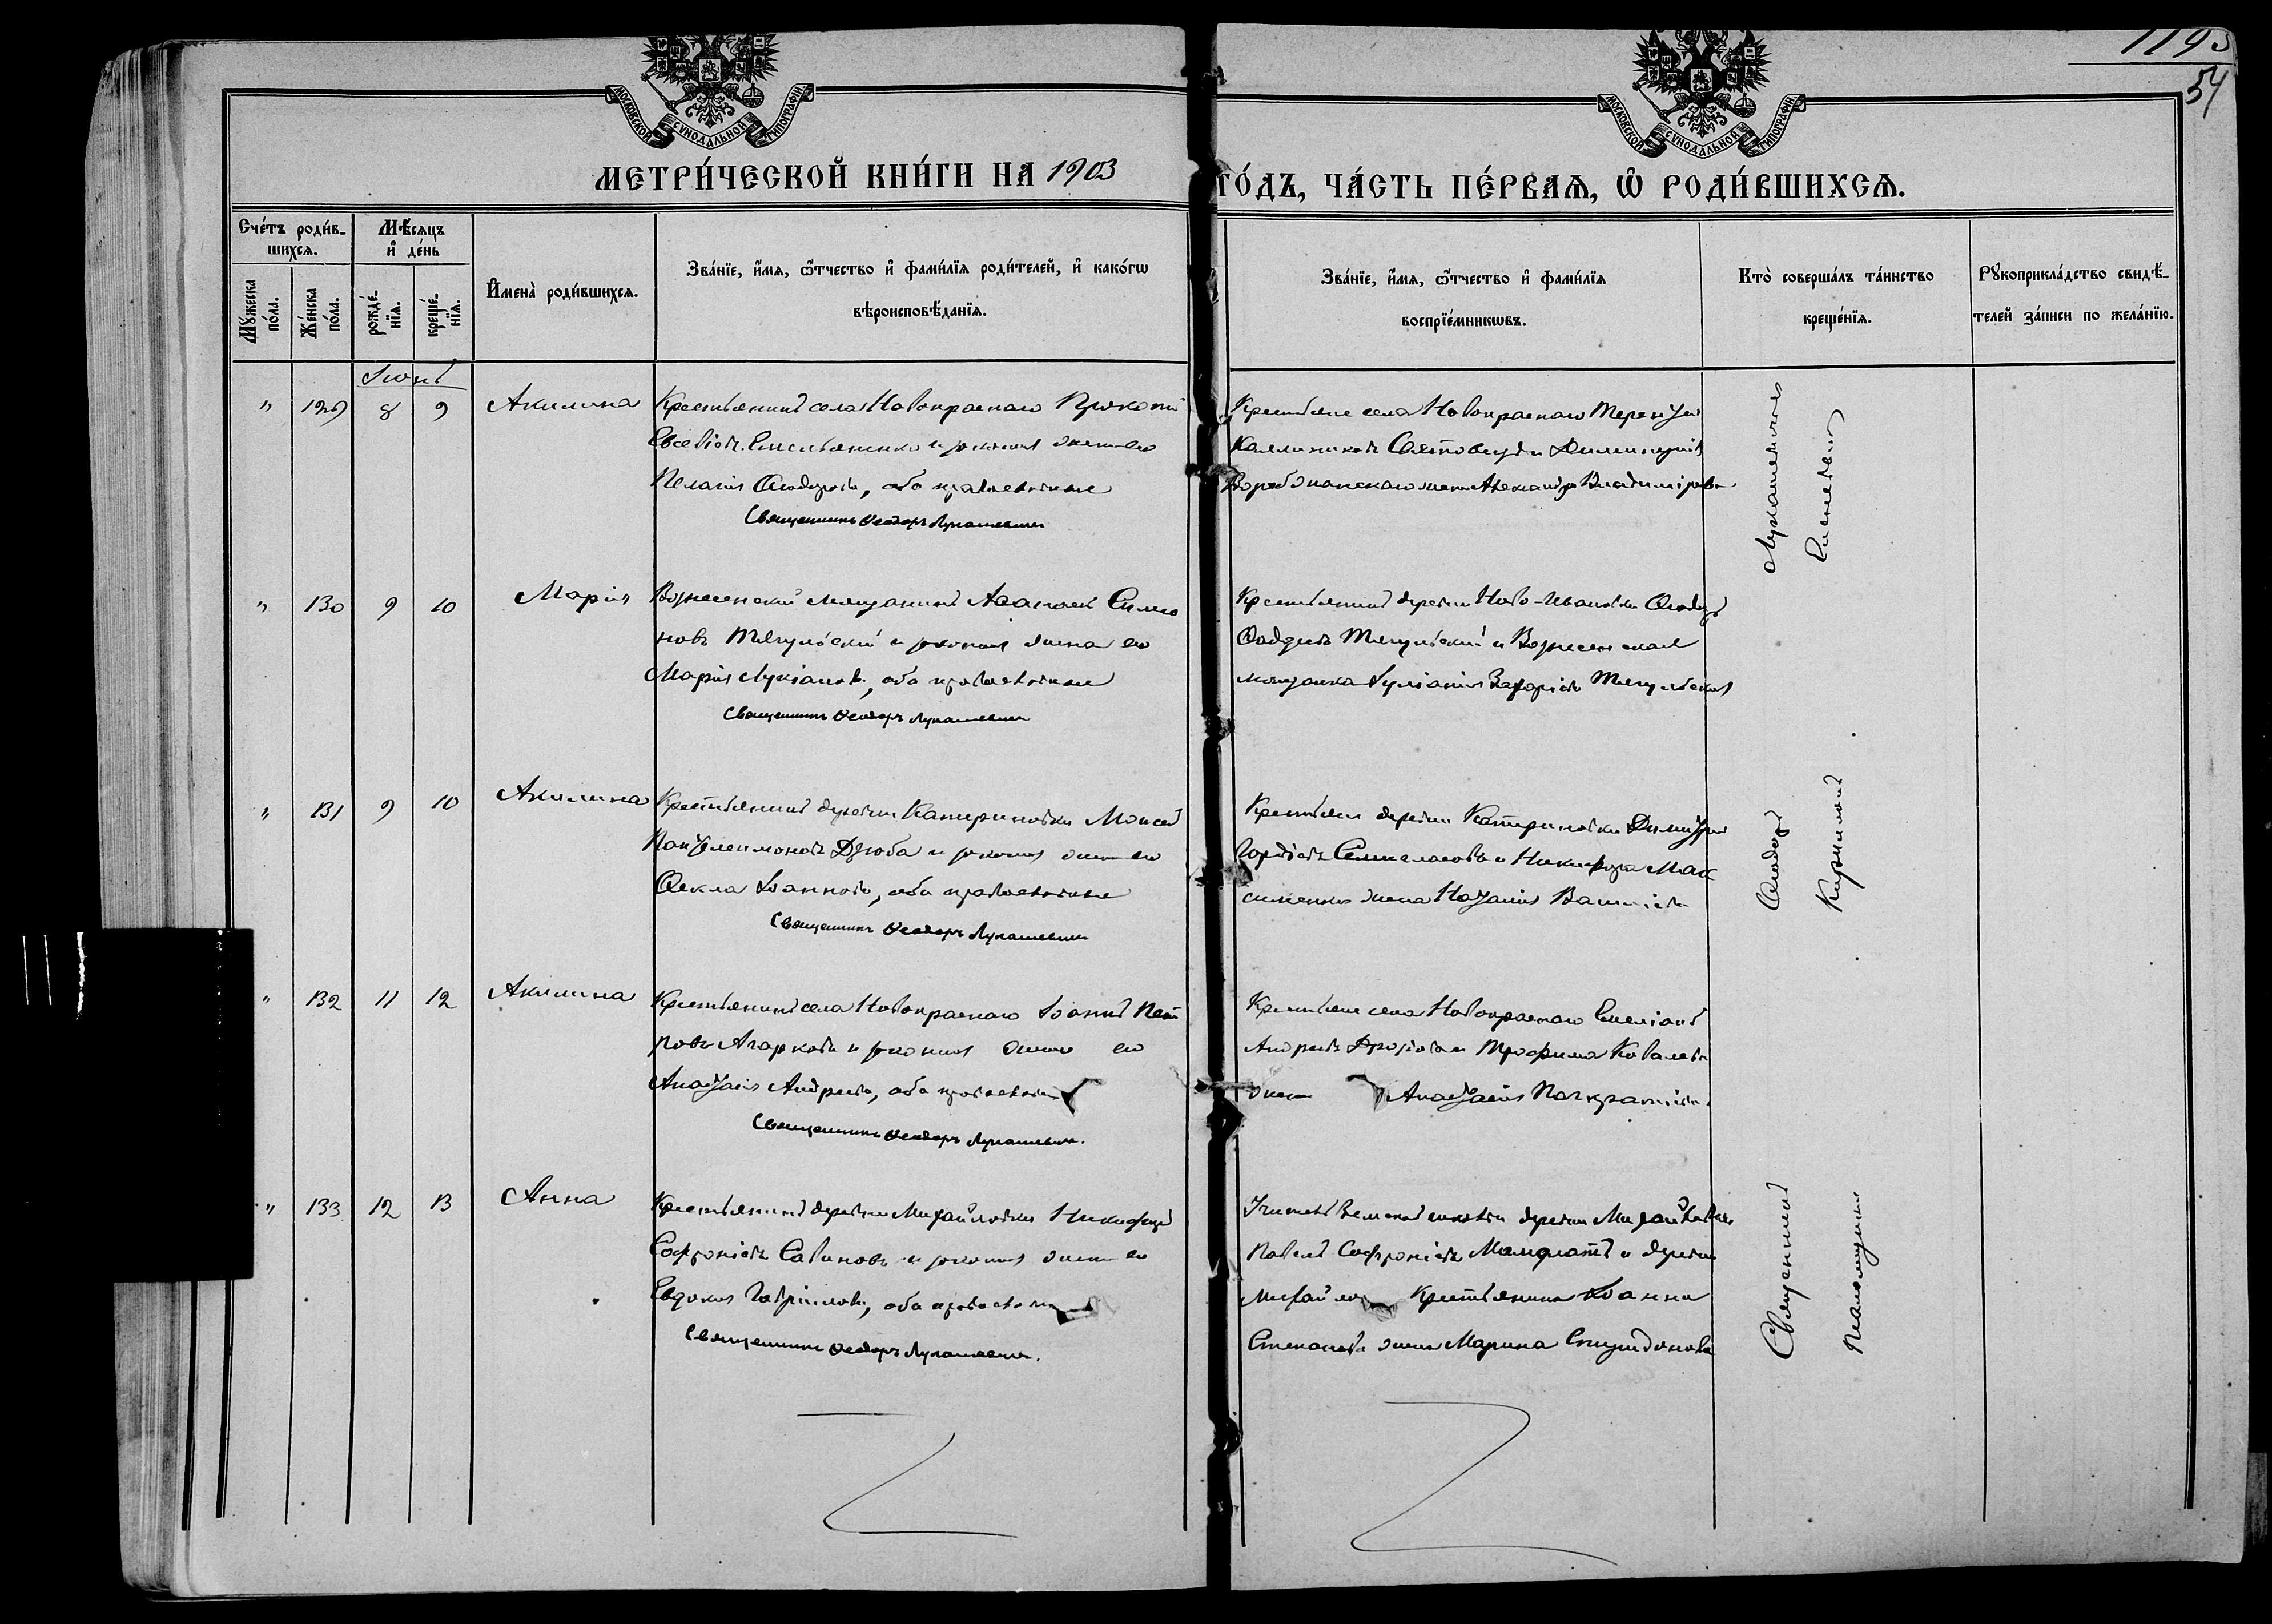 1193
54
МОСКОВСКОЙ СѴНОДАЛЬНОЙ ТИПОГРАФІИ
МОСКОВСКОЙ СѴНОДАЛЬНОЙ ТИПОГРАФІИ
МЕТРИ́ЧЕСКОЙ КНИ́ГИ НА 1903 ГО́ДЪ, ЧА́СТЬ ПЕ́РВАЯ, Ѡ҆ РОДИ́ВШИХСЯ.
Сче́тъ роди́в-
шихся.
Мѣ́сяцъ
и҆ де́нь
Мꙋ́жеска
по́ла.
Же́нска
по́ла.
рожде́-
нїя.
креще́-
нїя.
И҆мена̀ роди́вшихся.
Зва́нїе, и҆́мя, ѻ҆́тчество и҆ фами́лїя роди́телей, и҆ како́гѡ
вѣроисповѣ́данїя.
Зва́нїе, и҆́мя, ѻ҆́тчество и҆ фами́лїя
воспрїе́мникѡвъ.
Кто̀ соверша́лъ та́инство
креще́нїя.
Рꙋкоприкла́дство свидѣ́-
телей за́писи по жела́нїю.
Іюнь
" 129 8 9 Акилина
Крестьянинъ села Новокраснаго Прокопій
Евсевіевъ Емельяненко и законная жена его
Пелагія Ѳеодорова, оба православные
Священникъ Ѳеодоръ Лукашевичъ
Крестьяне села Новокраснаго Терентій
Каллиниковъ и Димитрія
жена Александра Владимірова
" 130 9 10 Марія
Вознесенскій мещанинъ Аѳанасій Симео
новъ Тягульскій и законная жена его
Марія Лукіанова, оба православные
Священникъ Ѳеодоръ Лукашевичъ
Крестьянинъ деревни Ново-Ивановки Ѳеодоръ
Ѳаддеевъ Тягульскій и Вознесенская
мещанка Іуліанія Захаріева Тягульская
" 131 9 10 Акилина
Крестьянинъ деревни Катериновки Моисей
Пантелеимоновъ Дзюба и законная жена его
Ѳекла Іоаннова, оба православные
Священникъ Ѳеодоръ Лукашевичъ
Крестьяне деревни Катериновки Димитрій
Гордіевъ и Никифора Мак
сименко жена Наталія Василіева
" 132 11 12 Акилина
Крестьянинъ села Новокраснаго Іоаннъ Пет
ровъ Агарковъ и законная жена его
Анастасія Андреева, оба православные
Священникъ Ѳеодоръ Лукашевичъ.
Крестьяне села Новокраснаго Емеліанъ
Андреевъ Дроздовъ и Трофима Ковалева
жена Анастасія Панкратіева
" 133 12 13 Анна
Крестьянинъ деревни Михайловки Никифоръ
Софроніевъ Савиновъ и законная жена его
Евдокія Гавріилова, оба православные
Священникъ Ѳеодоръ Лукашевичъ.
Учитель Земской школы деревни Михайловки
Павелъ Софроніевъ и деревни
Михайловки Крестьянина Іоанна
Степанова жена Марина Спиридонова
Священникъ Ѳеодоръ Лукашевичъ
Псаломщикъ